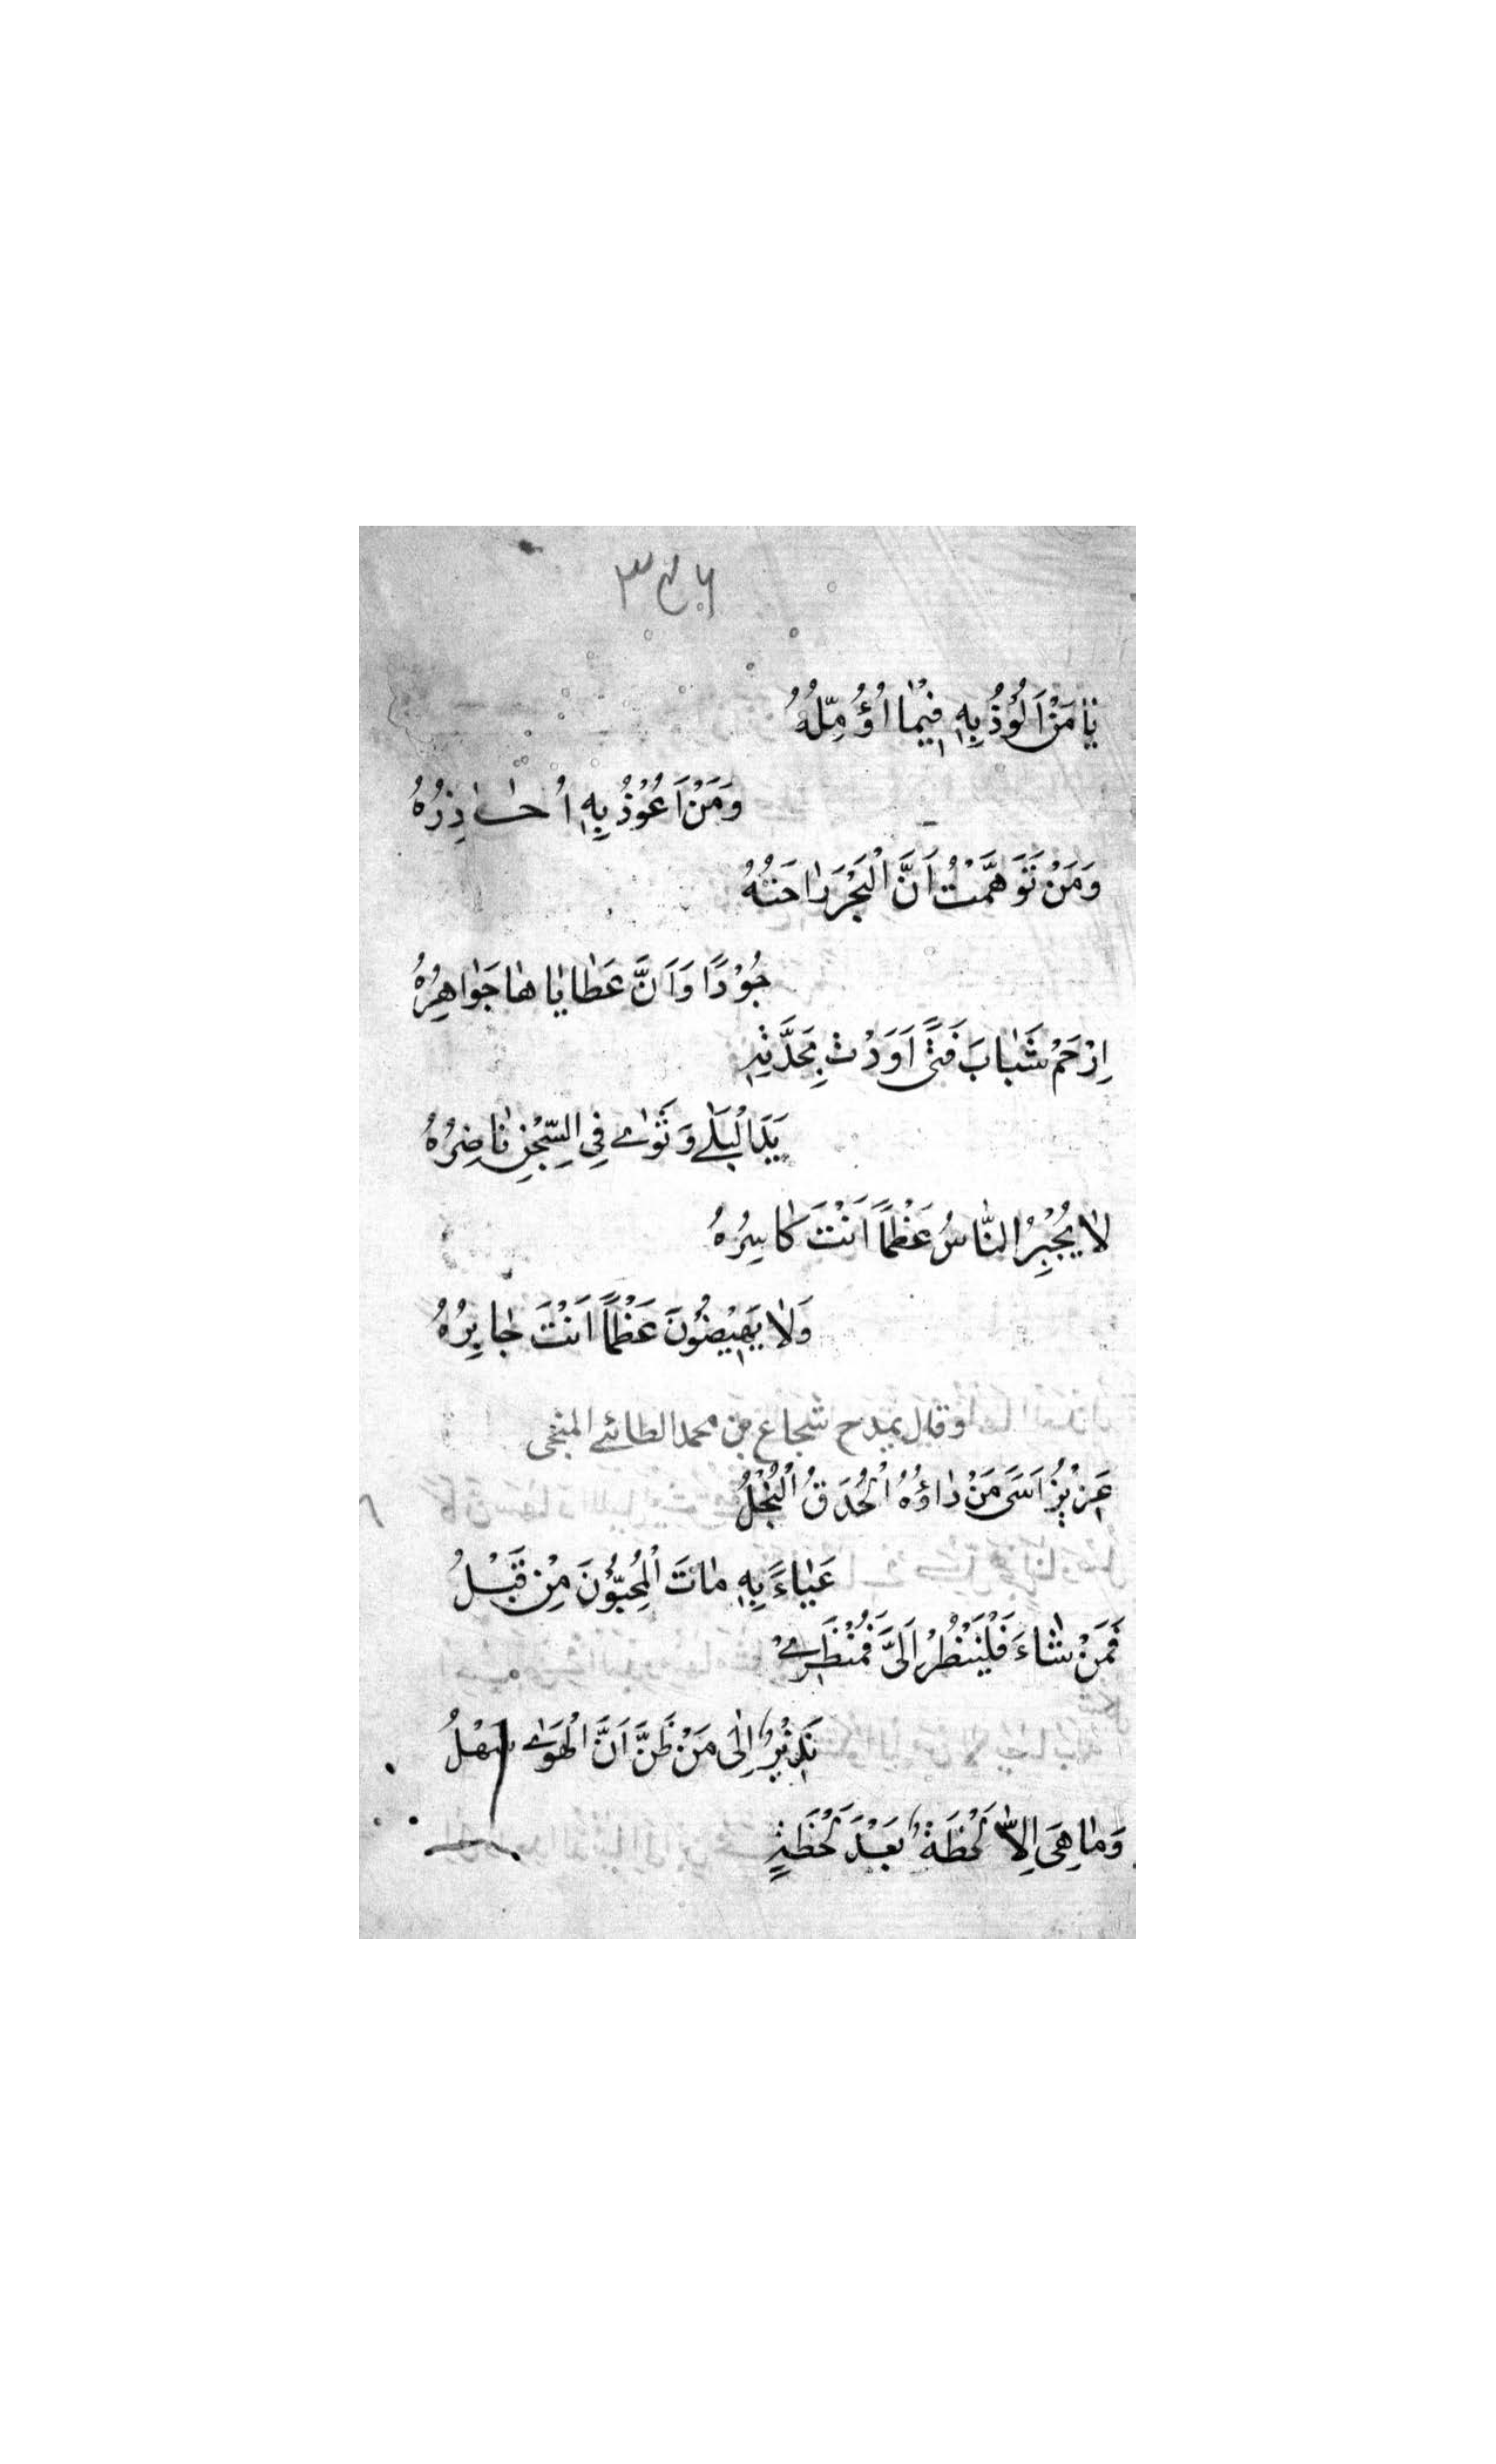 يَا مَنْ اَلُوْذُ بِهِ فِيْمَا اُؤَمِّلُهُ
وَمَنْ اَعُوْذُ بِهِ اُحَاذِرُهُ
وَمَنْ تَوَهَّمْتُ اَنَّ الْبَحْرَ رَاحَتُهُ
جُوْدًا وَاَنَّ عَطَايَاهَا جَوَاهِرُهُ
اِرْحَمْ شَبَابَ فَتًى اَوْدَتْ بِجِدَّتِهِ
يَدُ الْبِلَے وَذَوٰے فِي السِّجْنِ نَاضِرُهُ
لَا يُجْبِرُ النَّاسُ عَظْمًا اَنْتَ كَاسِرُهُ
وَلَا يَهِيْضُوْنَ عَظْمًا اَنْتَ جَابِرُهُ
وقال يمدح شجاع بن محمد الطائے المنبجى
عَزِيْزُ اَسًى مَنْ دَاؤُهُ الْحُدَقُ الْنُجْلُ
عَيَاءً بِهِ مَاتَ الْمُحِبُّوْنَ مِنْ قَبْلُ
فَمَنْ شَاءَ فَلْيَنْظُرْ اِلَىَّ فَمَنْظَرِےْ
نَذِيْرٌ اِلٰى مَنْ ظَنَّ اَنَّ الْهَوٰے سَهْلُ
وَمَا هِىَ اِلَّا لَحْظَةٌ بَعْدَ لَحْظَةٍ